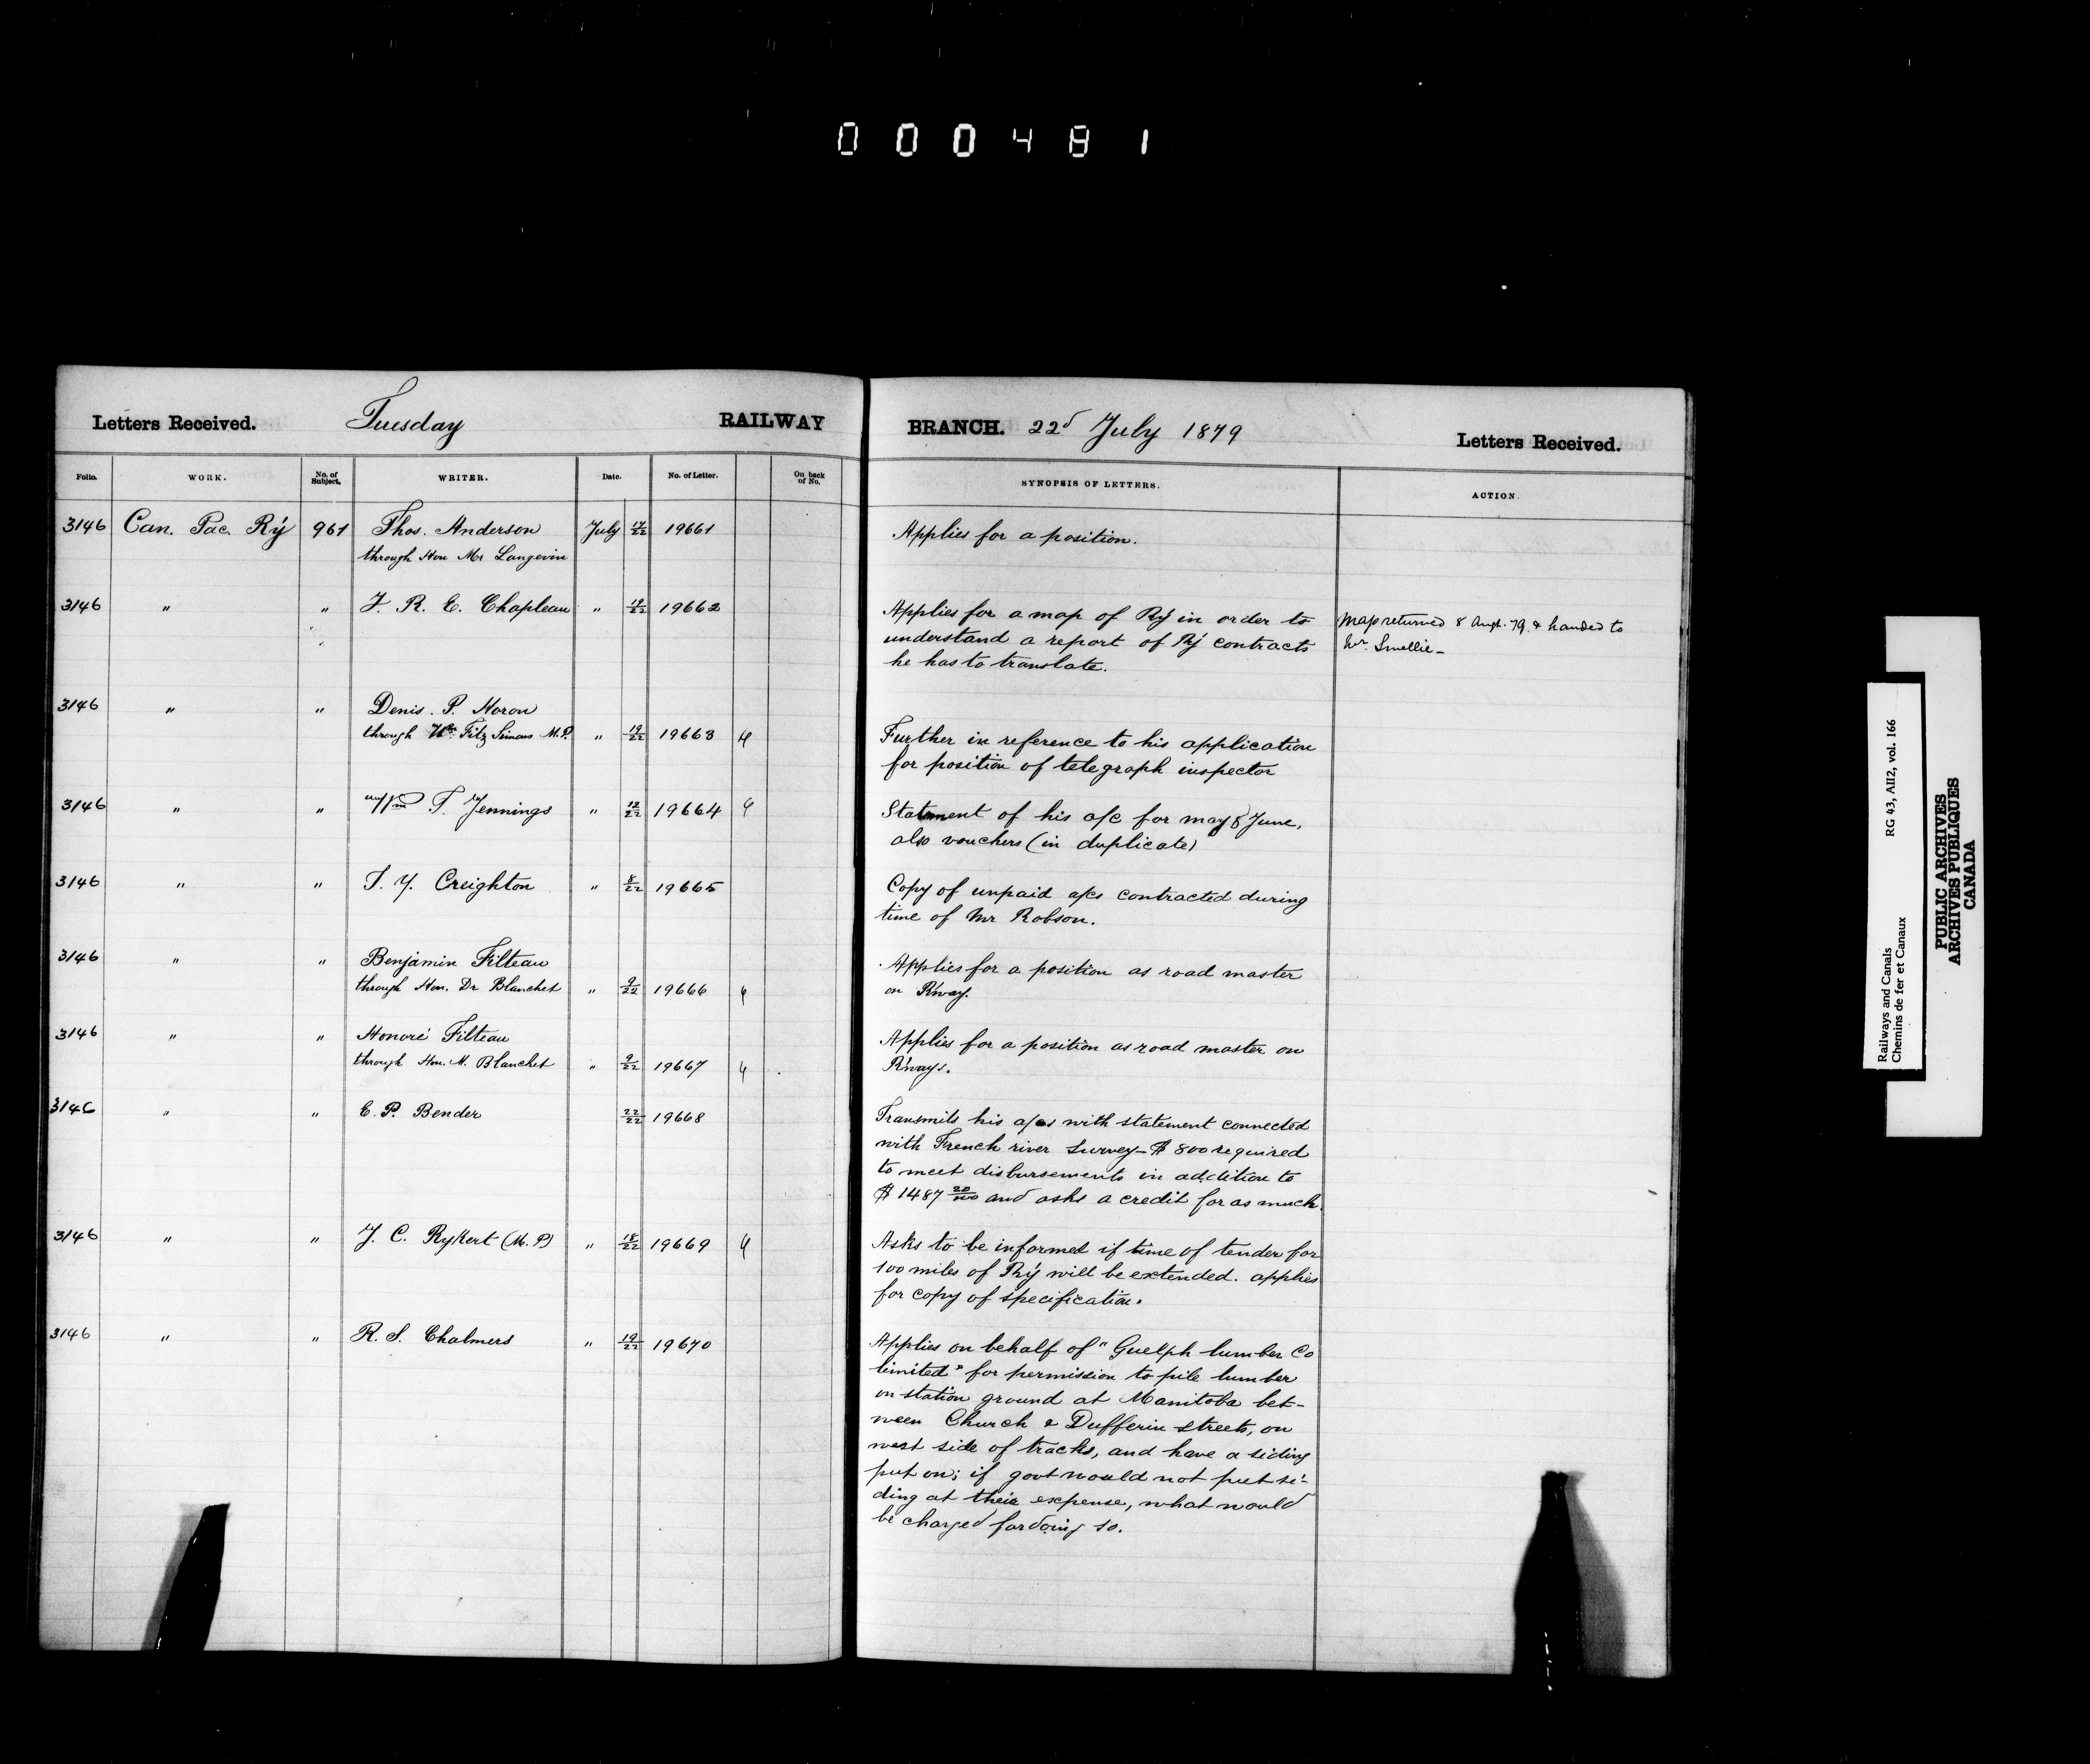 000481
Letters Received. Tuesday RAILWAY BRANCH. 22d July 1879 Letters Received.
Folio. WORK. No. of Subject. WRITER. Date. No. of Letter. On back of No. SYNOPSIS OF LETTERS. ACTION.
3146 Can. Pac. Ry 961 Thos. Anderson July 17/22 19661 Applies for a position.
through Hon Mr Langevin
3146 " " F. R. E. Chapleau " 19/22 19662 Applies for a map of Ry in order to Map returned 8 Augt. 79. & handed to
understand a report of Ry contracts Mr. Smellie_
he has to translate.
3146 " " Denis. P. Horon
through Wm Fitz Simons M.P. " 19/22 19663 4 Further in reference to his application
for position of telegraph inspector
3146 " " Wm T. Jennings " 12/22 19664 4 Statement of his a/c for may & June,
also vouchers (in duplicate)
3146 " " T. Y. Creighton " 8/22 19665 Copy of unpaid a/cs contracted during
time of Mr Robson.
3146 " " Benjamin Filteau Applies for a position as road master
through Hon. Dr Blanchet " 9/22 19666 4 on Rway.
3146 " " Honoré Filteau Applies for a position as road master on
through Hon. M. Blanchet " 9/22 19667 4 Rways.
3146 " " E. P. Bender 22/22 19668 Transmits his a/cs with statement connected
with French river Survey_ $ 800 required
to meet disbursements in addition to
$ 1487 20/100 and asks a credit for as much.
3146 " " J. C. Rykert (M.P) " 18/22 19669 4 Asks to be informed if time of tender for
100 miles of Ry will be extended. applies
for copy of specification.
3146 " " R. S. Chalmers " 19/22 19670 Applies on behalf of "Guelph lumber Co
limited" for permission to pile lumber
on station ground at Manitoba bet-
ween Church & Dufferin streets, on
west side of tracks, and have a siding
put on; if govt would not put si-
ding at their expense, what would
be charged for doing so.
Railways and Canals RG 43, AII2, vol. 166
Chemins de fer et Canaux
PUBLIC ARCHIVES
ARCHIVES PUBLIQUES
CANADA